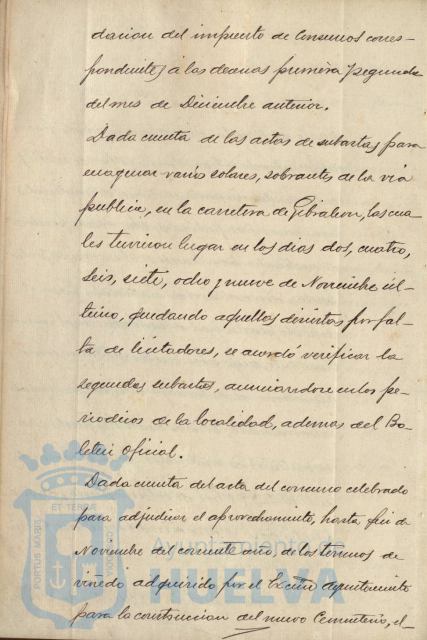 dacion del impuesto de Consumos corres-
pondientes á las decenas primera y segunda
del mes de Diciembre anterior.
Dada cuenta de las actas de subastas para
enagenar varios solares, sobrantes de la via
publica, en la carretera de Gibraleon, las cua-
les tuvieron lugar en los dias dos, cuatro,
seis, siete, ocho y nueve de Noviembre úl-
timo, quedando aquellas desiertas por fal-
ta de licitadores, se acordó verificar las
segundas subastas, anunciandose en los pe-
riodicos de la localidad, ademas del Bo-
letin Oficial.
Dada cuenta del acta del concurso celebrado
para adjudicar el aprovechamiento, hasta fin de
Noviembre del corriente año, de los terrenos de
viñedo adquirido por el Excmo Ayuntamiento
para la construccion del nuevo Cementerio, el
PORTUS MARIS
ET TERRAE
CUSTODIA
Ayuntamiento de
HUELVA